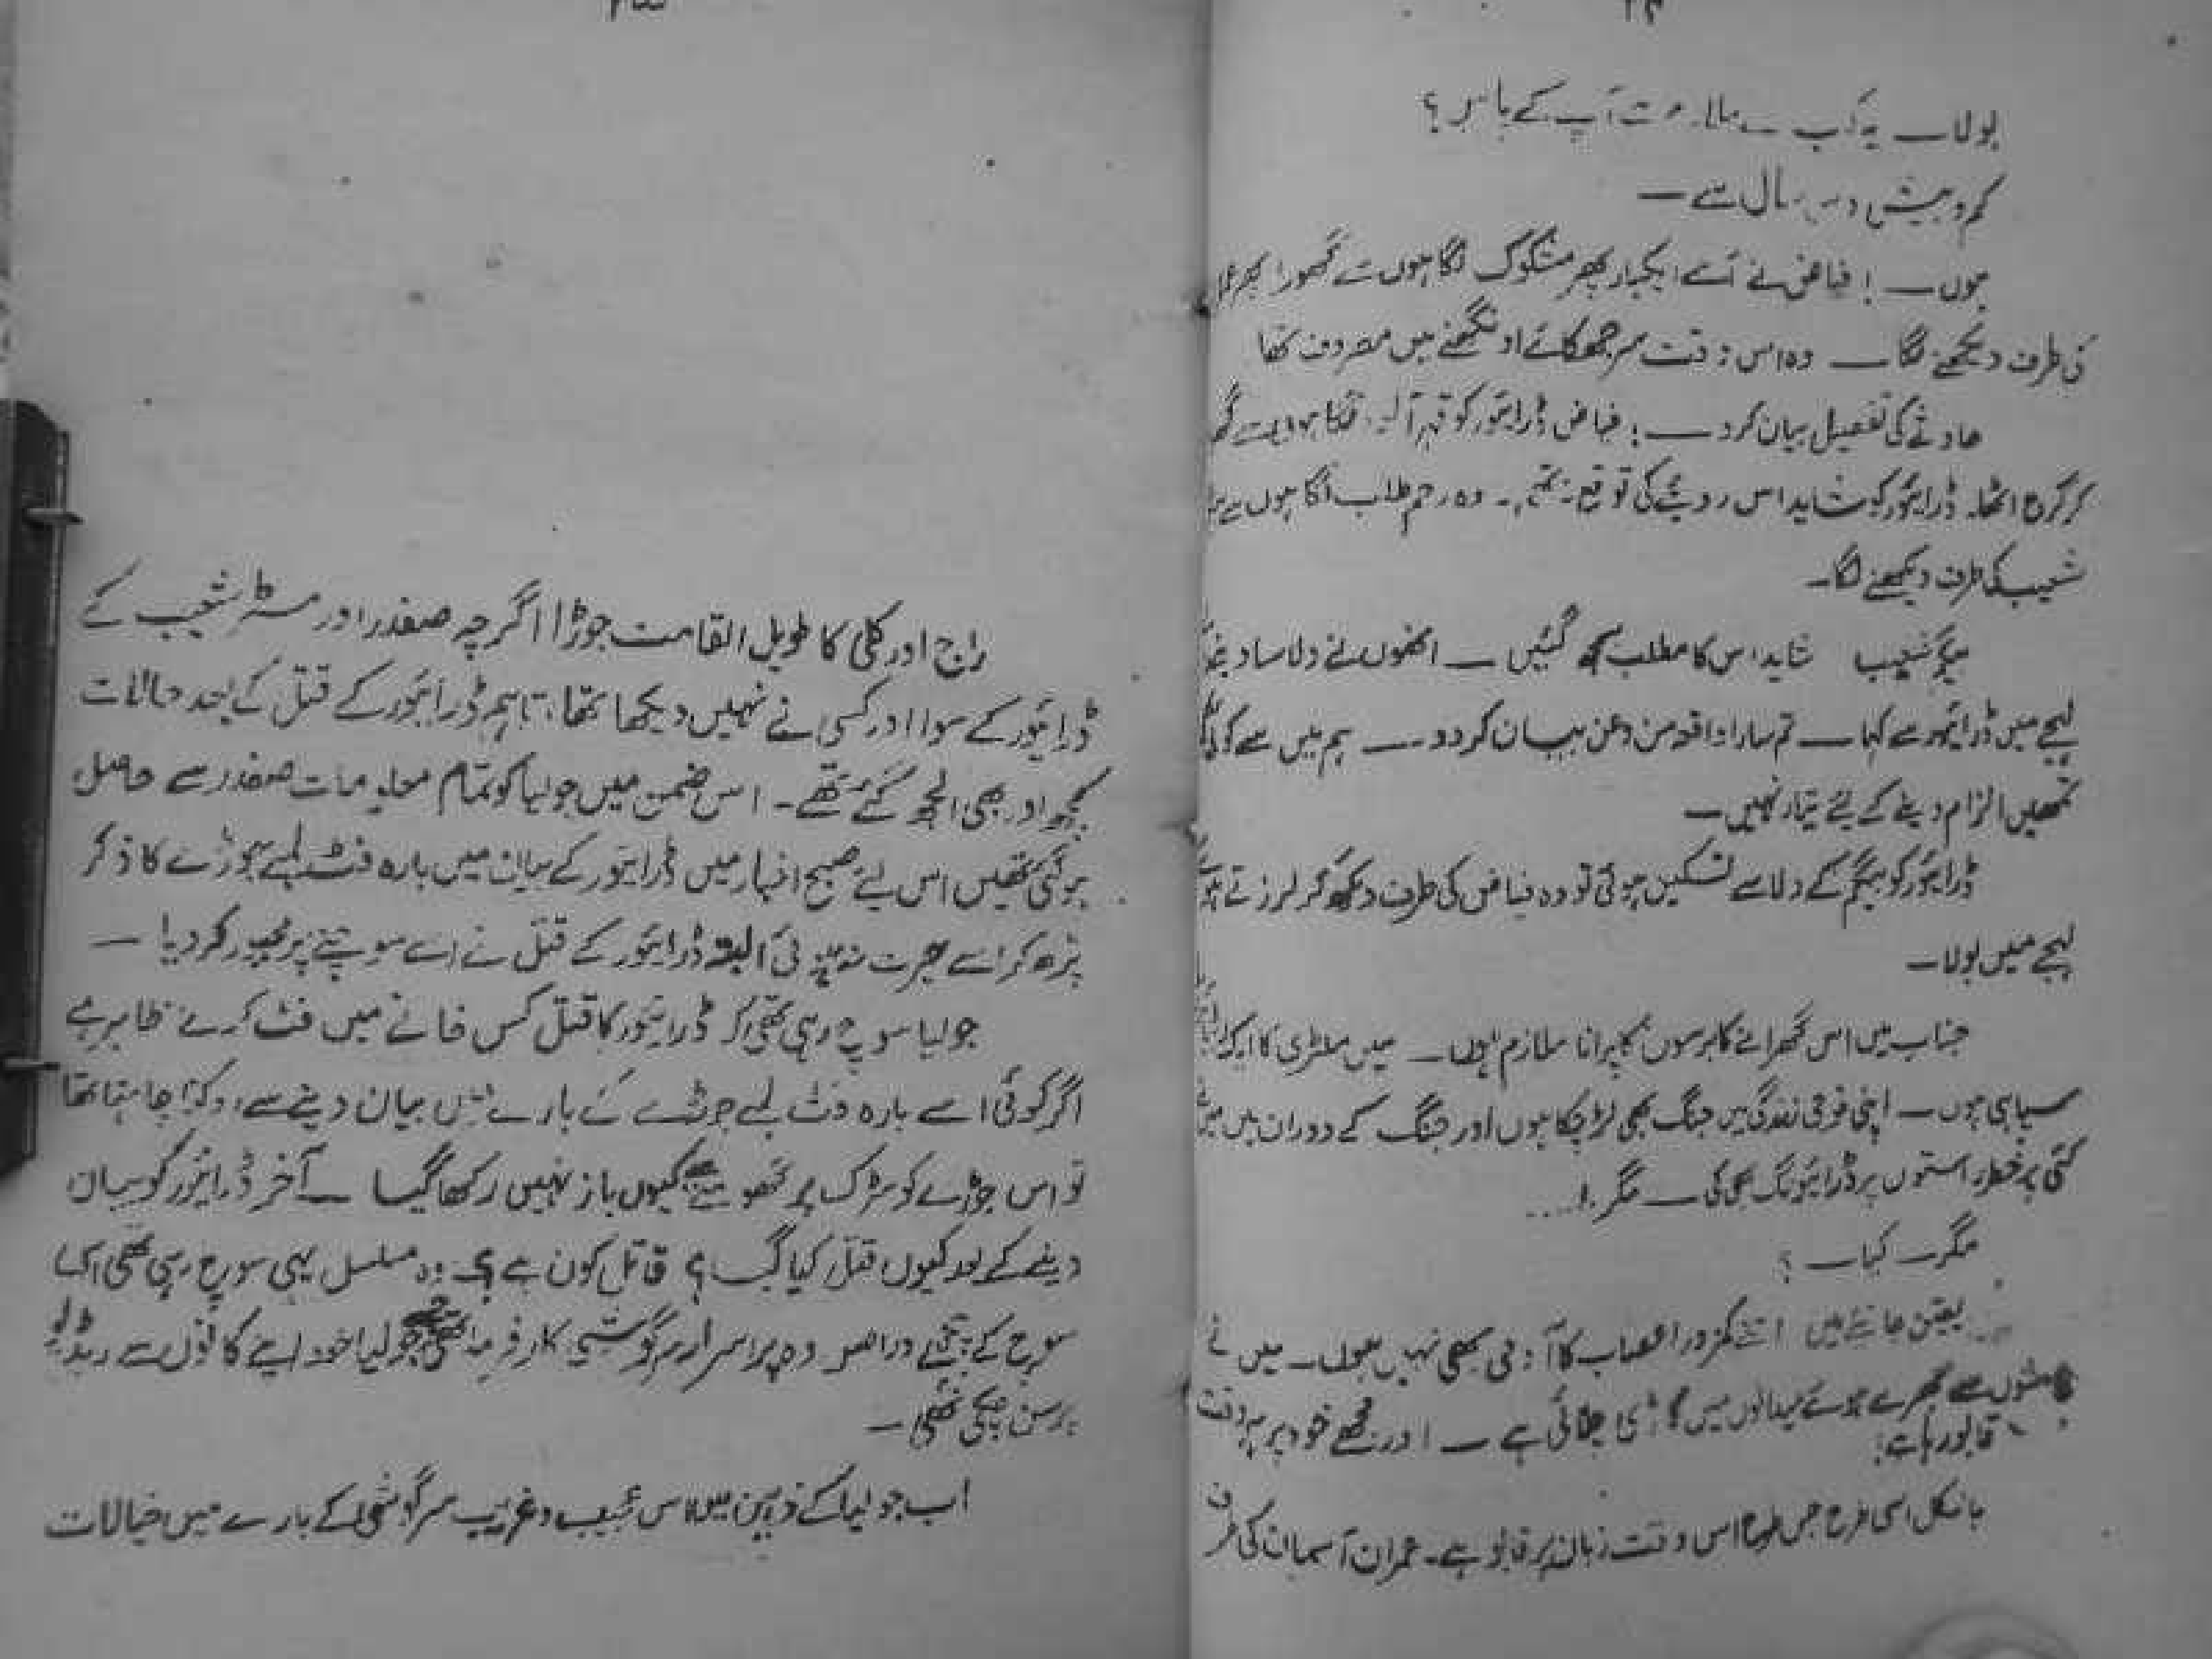 بولا — یہ کب سے ملازمت آپ کے پاس ہے؟
کم و بیش دس سال سے —
ہوں — ! فیاض نے اُسے ایکبار پھر مشکوک نگاہوں سے گھورا پھر
کی طرف دیکھنے لگا — وہ اس وقت سر جھکائے اونگھنے میں مصروف تھا
حادثے کی تفصیل بیان کرو — ! فیاض ڈرائیور کو قہر آلود نگاہوں سے
کر گرج اٹھا۔ ڈرائیور کو شاید اس رویئے کی توقع نہ تھی۔ وہ رحم طلب نگاہوں سے
شعیب کی طرف دیکھنے لگا۔
شعیب شاید اس کا مطلب سمجھ گئیں — انھوں نے دلاسا
لہجے میں ڈرائیور سے کہا — تم سارا واقعہ من و عن بیان کر دو — ہم میں سے کوئی
تمھیں الزام دینے کے لئے تیار نہیں —
ڈرائیور کو بیگم کے دلاسے تسکین ہوئی تو وہ فیاض کی طرف دیکھ کر لرزتے ہوئے
لہجے میں بولا —
جناب میں اس گھرانے کا برسوں پرانا ملازم ہوں — میں ملٹری کا ایک
سپاہی ہوں — اپنی فوجی زندگی میں جنگ بھی لڑ چکا ہوں اور جنگ کے دوران میں میں نے
کئی پر خطر راستوں پر ڈرائیونگ بھی کی — مگر ! ....
مگر — کیا — ؟
یقین جانیئے میں اتنے کمزور اعصاب کا آدمی بھی نہیں ہوں — میں نے
سے بھرے ہوئے میدانوں میں گاڑی چلائی ہے — اور مجھے خود پر ہر وقت
قابو رہا ہے۔
بالکل اسی طرح جس طرح اس وقت زبان پر قابو ہے۔ عمران آسمان کی طرف
راج اور کلی کا طویل القامت جوڑا اگرچہ صفدر اور مسٹر شعیب کے
ڈرائیور کے سوا اور کسی نے نہیں دیکھا تھا، تاہم ڈرائیور کے قتل کے بعد حالات
کچھ اور بھی الجھ گئے تھے۔ اس ضمن میں جولیا کو تمام معلومات صفدر سے حاصل
ہو گئی تھیں اس لئے صبح اخبار میں ڈرائیور کے بیان میں بارہ فٹ لمبے جوڑے کا ذکر
پڑھ کر اسے حیرت نہ ہوئی البتہ ڈرائیور کے قتل نے اسے سوچنے پر مجبور کر دیا! —
جولیا سوچ رہی تھی کہ ڈرائیور کا قتل کس خانے میں فٹ کرے ظاہر ہے
اگر کوئی اسے بارہ فٹ لمبے جوڑے کے بارے میں بیان دینے سے روکنا چاہتا تھا
تو اس جوڑے کو سڑک پر گھومنے سے کیوں باز نہیں رکھا گیا — آخر ڈرائیور کو بیان
دینے کے بعد کیوں قتل کیا گیا؟ قاتل کون ہے؟ — وہ مسلسل یہی سوچ رہی تھی اس
سوچ کے پیچھے دراصل وہ پراسرار سرگوشی کارفرما تھی جو جولیا خود اپنے کانوں سے ریڈیو
پر سن چکی تھی —
اب جولیا کے ذہن میں اس عجیب و غریب سرگوشی کے بارے میں خیالات